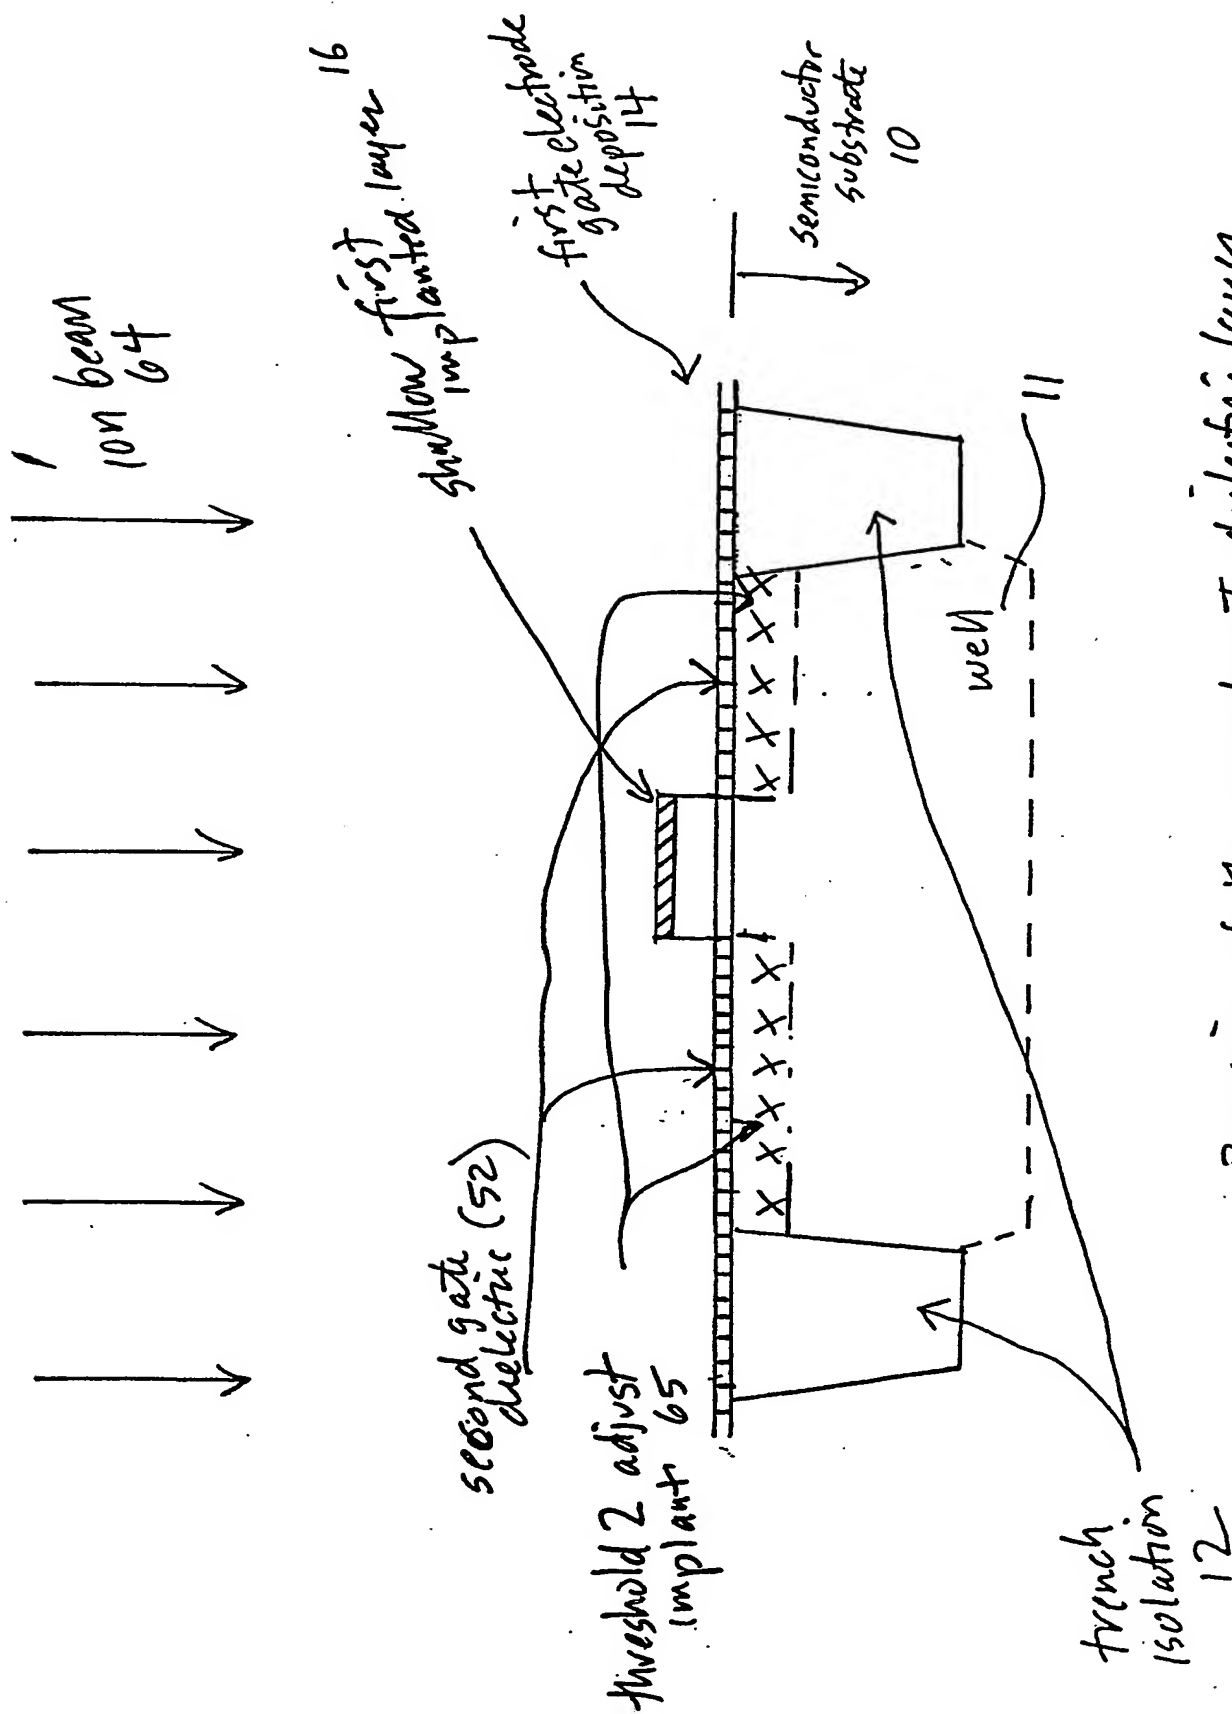 ion beam
64
shallow first
implanted layer 16
first
gate electrode
deposition
14
semiconductor
substrate
10
second gate
dielectric (52)
threshold 2 adjust
implant 65
X X X X X X
X X X X X
well
11
trench
isolation
12